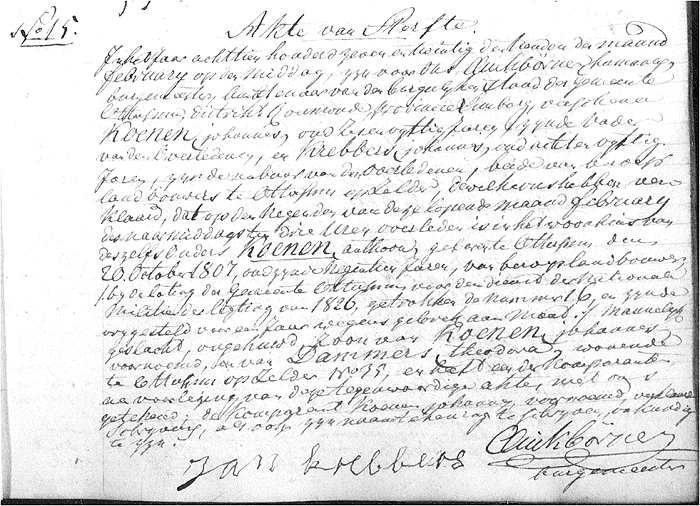 N° 15.
Akte van Sterfte.
In het Jaar achttien honderd zeven en twintig den tienden der maand
february op den middag, zyn voor ons Quickborne
burgemeester, Amtenaar van den burgerlyken Stand der Gemeente
Ottersum, District Roermonde, provincie Limburg, verschenen
Koenen, johannes, oud zesenvyftig jaren zynde Vader
van den Overledenen, en Krebbers, johannes, oud achtenvyftig
Jaren, zynde nabuur van den Overledenen, beide van beroep
landbouwers te Ottersum op Zelder, dewelke ons hebben ver
klaard, dat op den Negenden van deze loopende maand february
des naarmiddags ten drie Uren overleden is in het woonhuis van
deszelfs Ouders Koenen, anthoon, geboren te Ottersum den
20 October 1807, oud zynde Negentien Jaren, van beroep landbouwer,
by de loting der Gemeente Ottersum voor den dienst der Nationale
Militie der ligting van 1826, getrokken de nummer 6, en zynde
vrygesteld voor een jaar wegens gebrek aan Maad. Mannelyk
geslacht, ongehuwd, Zoon van Koenen, johannes
voornoemd, en van Dammers, theodora, woonende
te Ottersum op Zelder N° 35, en heeft een der komparanten
na voorlezing van deze tegenwoordige akte, met ons
getekend; de komparant Koenen johannes, voornoemd, verklaarde
schryvens, als ook zyn naamtekening te schryven, onkundig
te zyn.
Jan krebbers
Quickborne
burgemeester